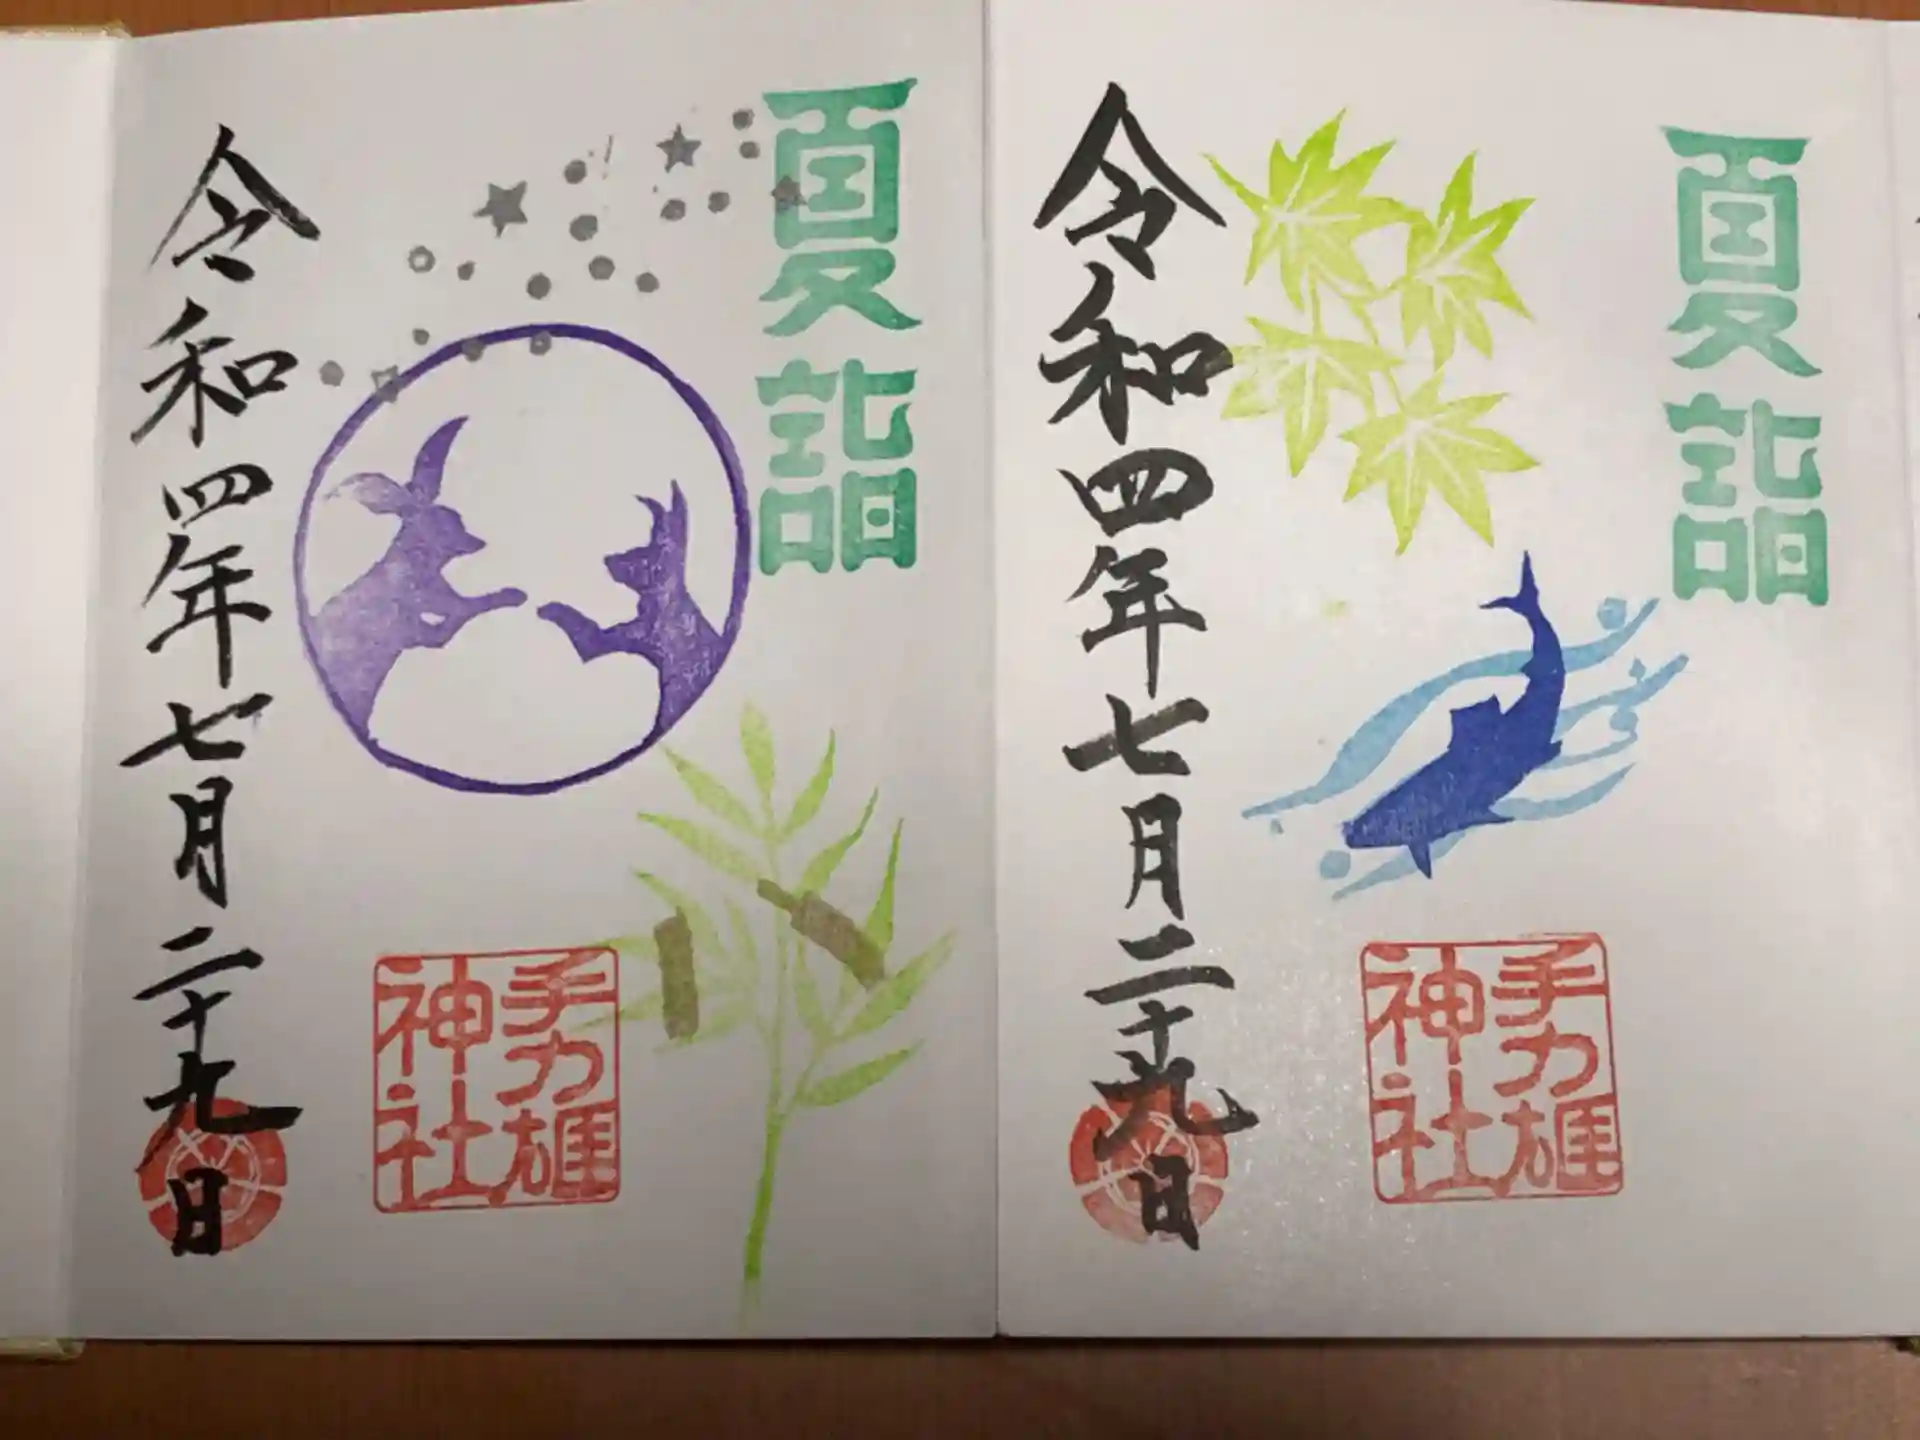 夏詣
令和四年七月二十九日
手力雄
神社
夏詣
令和四年七月二十九日
手力雄
神社